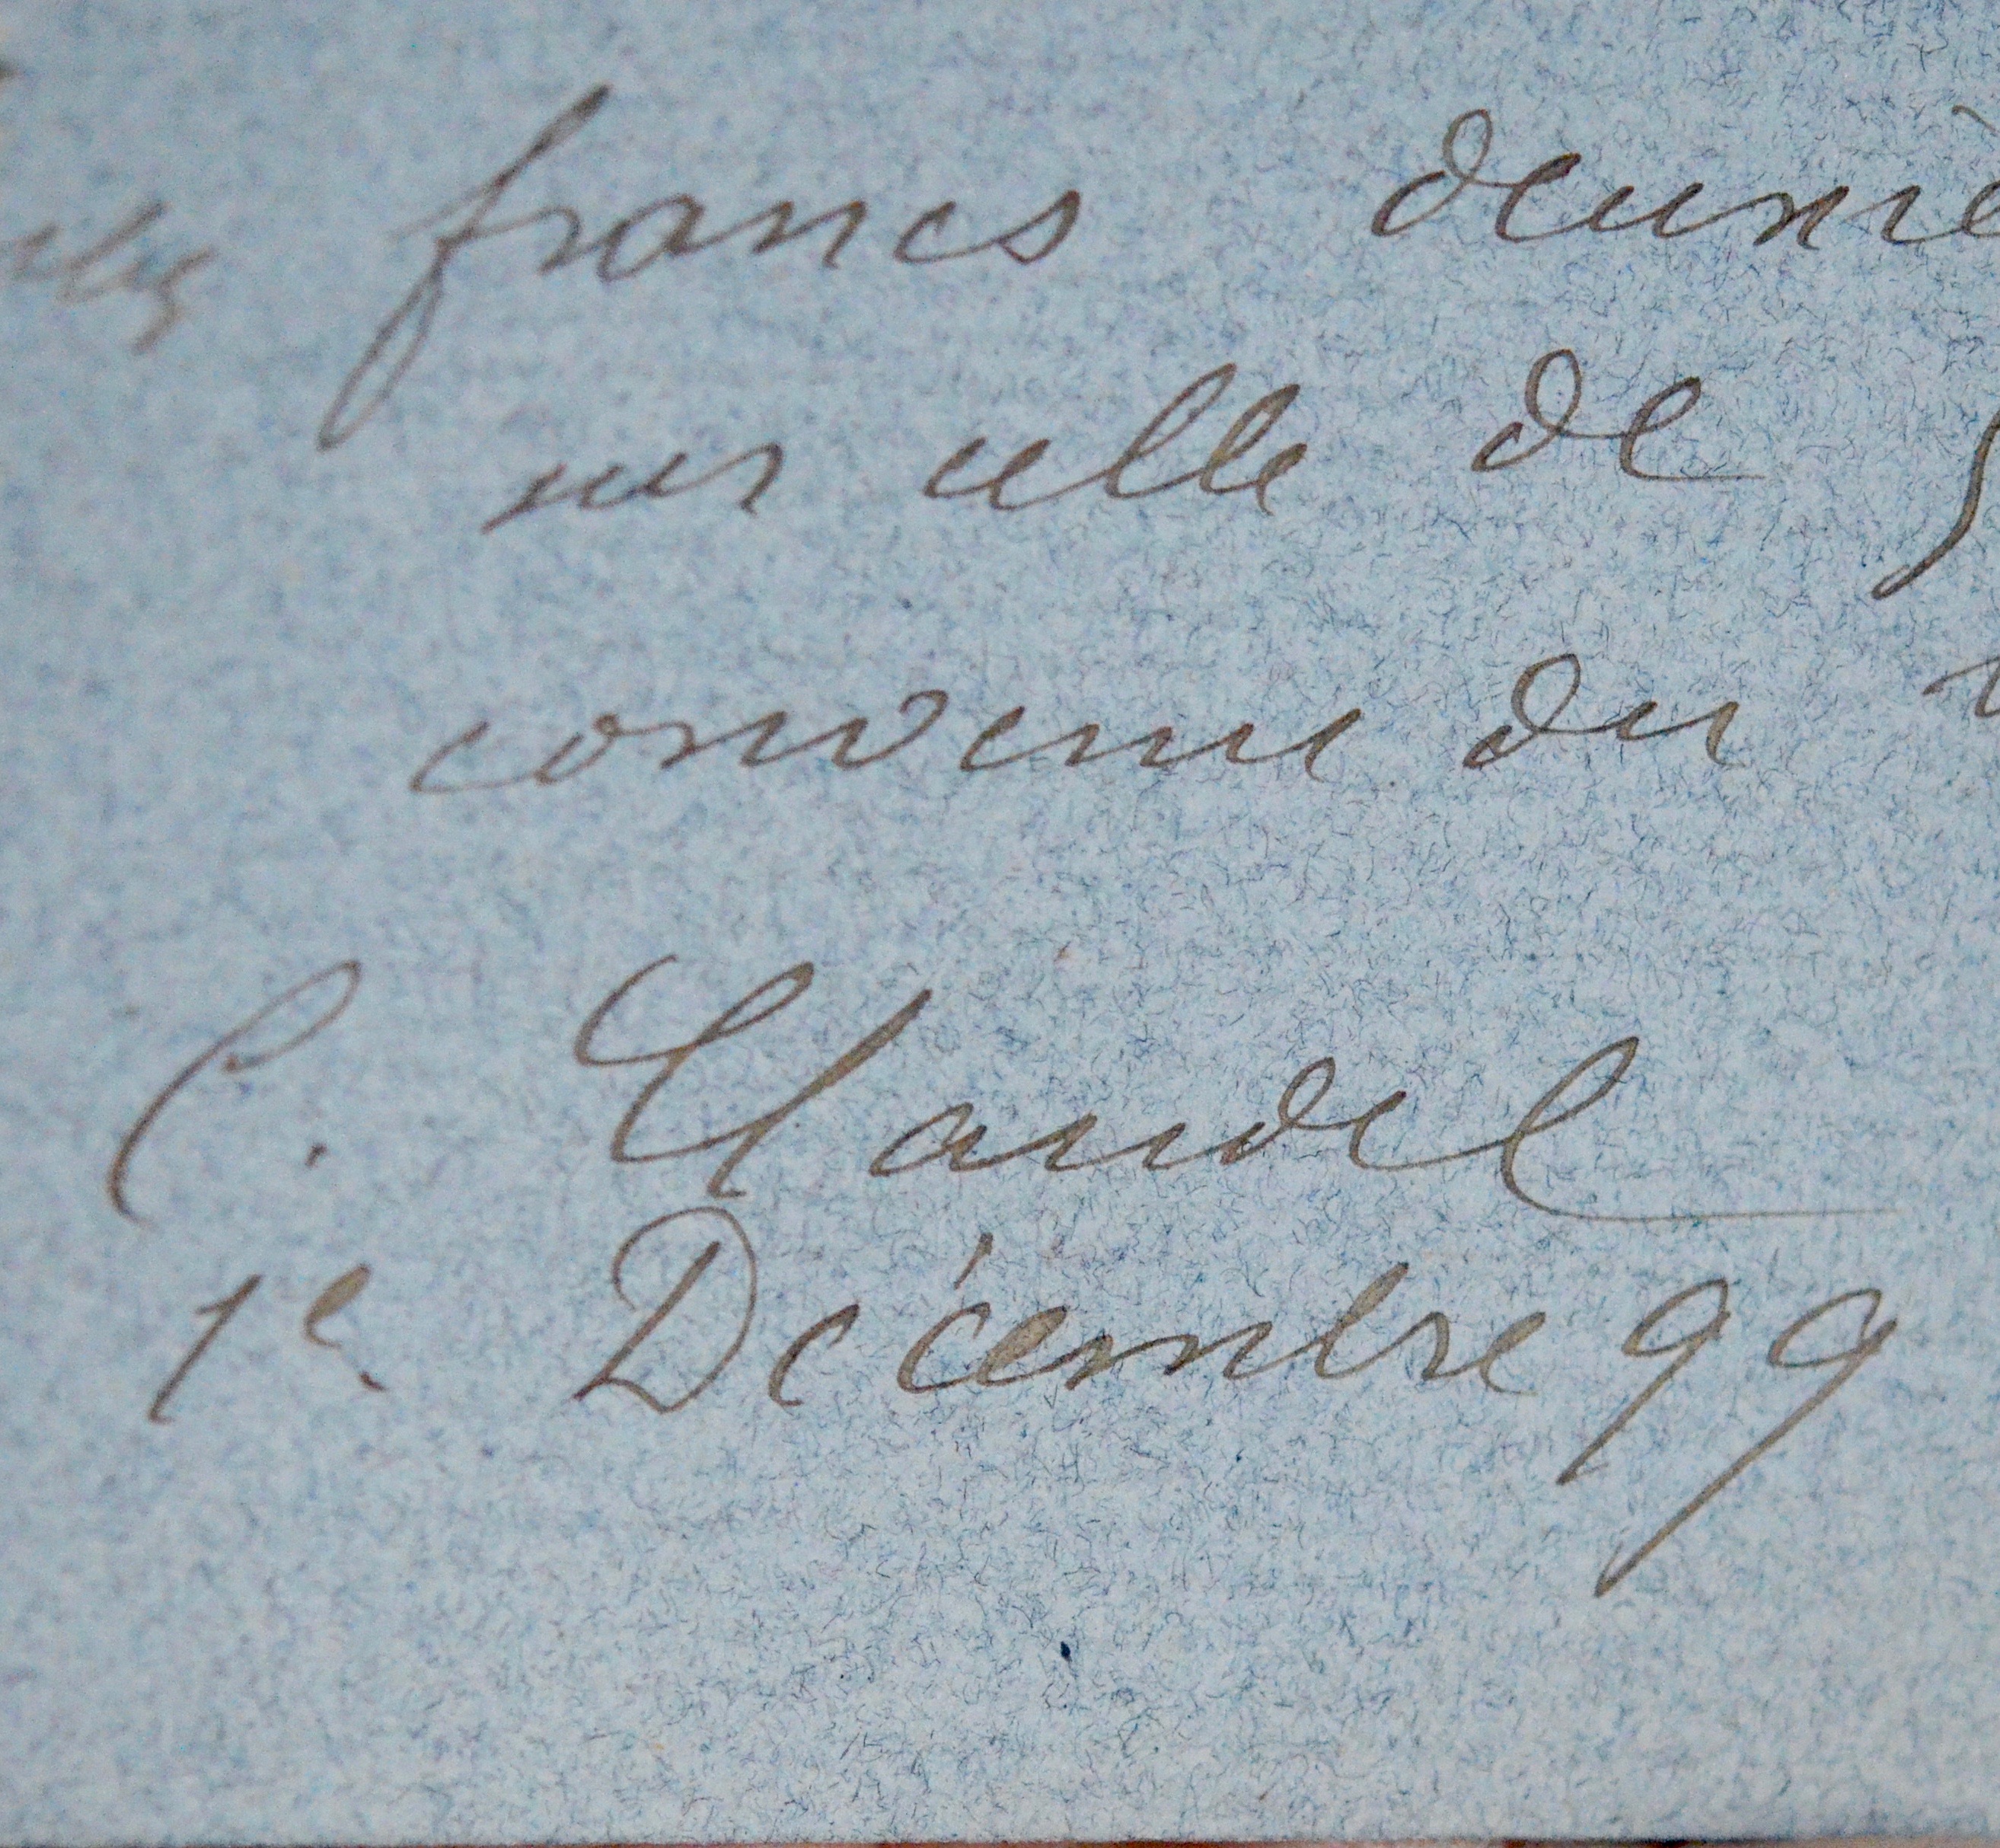 francs derniè
sur celle de
convenue du
C. Claudel
1e Décembre 99